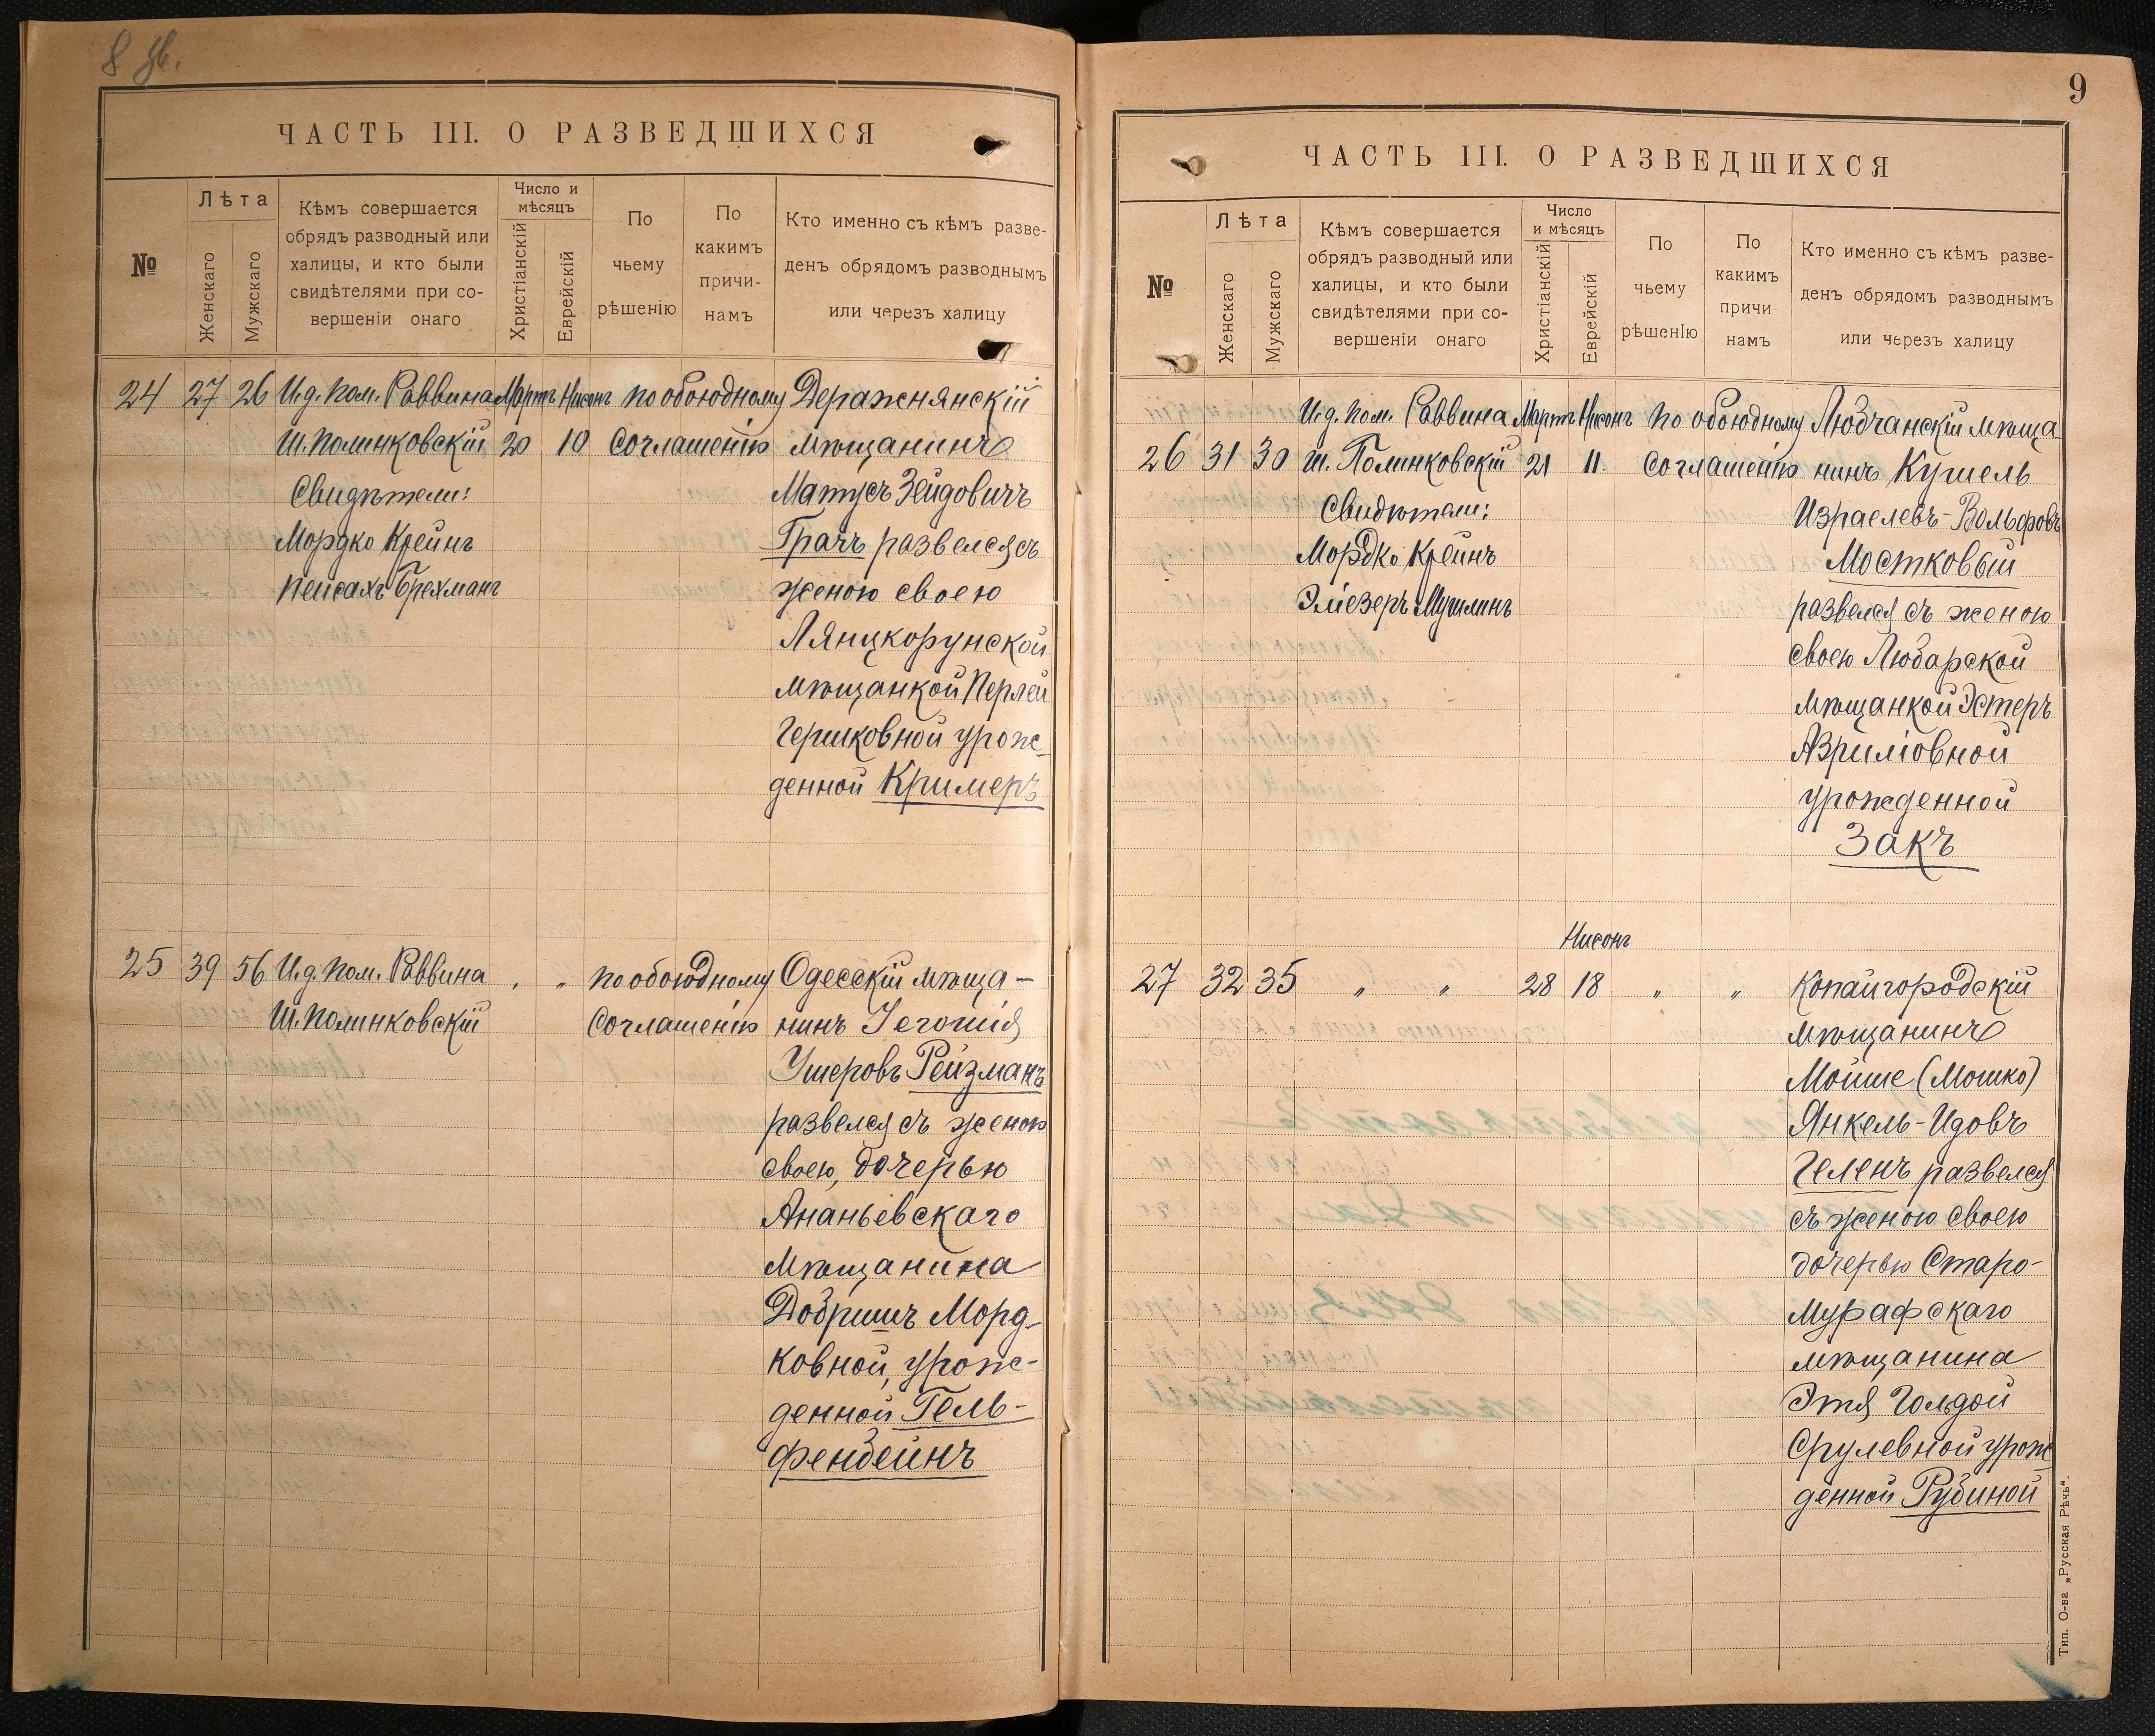 ЧАСТЬ III. О РАЗВЕДШИХСЯ
№
Лѣта
Женскаго
Мужскаго
Кѣмъ совершается
обрядъ разводный или
халицы, и кто были
свидѣтелями при со-
вершеніи онаго
Число и
мѣсяцъ
Христіанскій
Еврейскій
По
чьему
рѣшенію
По
какимъ
причи-
намъ
Кто именно съ кѣмъ разве-
денъ обрядомъ разводнымъ
или черезъ халицу
24 27 26 И.д. пом. Раввина Мартъ Нисонъ по обоюдному Деражнянскій
Ш. Полинковскій 20 10 соглашенію мѣщанинъ
Свидѣтели: Матусъ Зейдовичъ
Мордко Крейнъ Грачъ развелся съ
Пейсахъ Брехманъ женою своею
Лянцкорунской
мѣщанкой Перлей
Гершковной урож-
денной Кримеръ
25 39 56 И.д. пом. Раввина " " по обоюдному Одесскій мѣща-
Ш. Полинковскій соглашенію нинъ Іегошія
Ушеровъ Рейзманъ
развелся съ женою
своею, дочерью
Ананьевскаго
мѣщанина
Добришъ Морд-
ковной, урож-
денной Гель-
фенбейнъ
9
ЧАСТЬ III. О РАЗВЕДШИХСЯ
№
Лѣта
Женскаго
Мужскаго
Кѣмъ совершается
обрядъ разводный или
халицы, и кто были
свидѣтелями при со-
вершеніи онаго
Число
и мѣсяцъ
Христіанскій
Еврейскій
По
чьему
рѣшенІю
По
какимъ
причи
намъ
Кто именно съ кѣмъ разве-
денъ обрядомъ разводнымъ
или черезъ халицу
И.д. пом. Раввина Мартъ Нисонъ по обоюдному Любчанскій мѣща-
26 31 30 Ш. Полинковскій 21 11 соглашенію нинъ Кушель
Свидѣтели: Израелевъ-Вольфовъ
Мордко Крейнъ Мостковый
Эліезеръ Мушлинъ развелся съ женою
своею Любарской
мѣщанкой Эстеръ
Азриліовной
урожденной
Закъ
Нисонъ
27 32 35 " " 28 18 " " Копайгородскій
мѣщанинъ
Мойше (Мошко)
Янкель-Идовъ
Геленъ развелся
съ женою своею
дочерью Старо-
мурафскаго
мѣщанина
Этя Голдой
Срулевной урож
денной Рубиной
Тип. О-ва „Русская Рѣчь“.